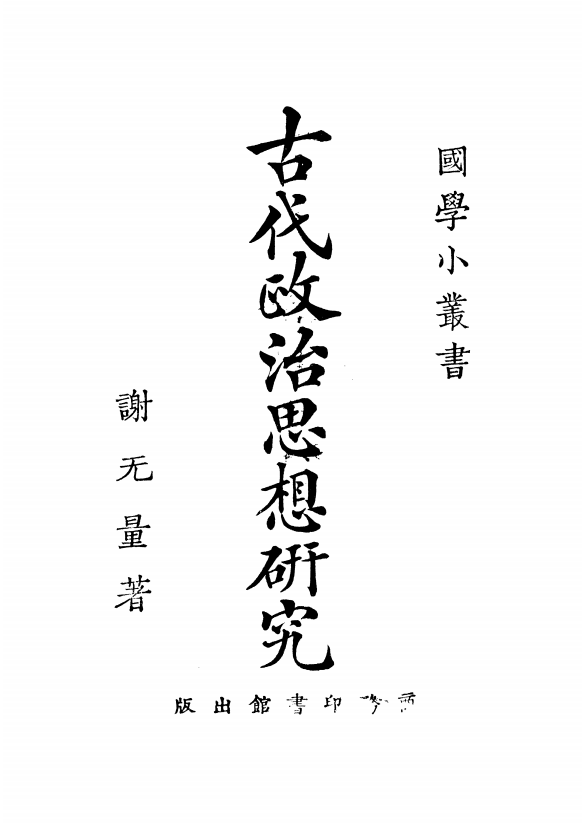 國學小叢書
古代政治思想研究
謝无量著
商務印書館出版